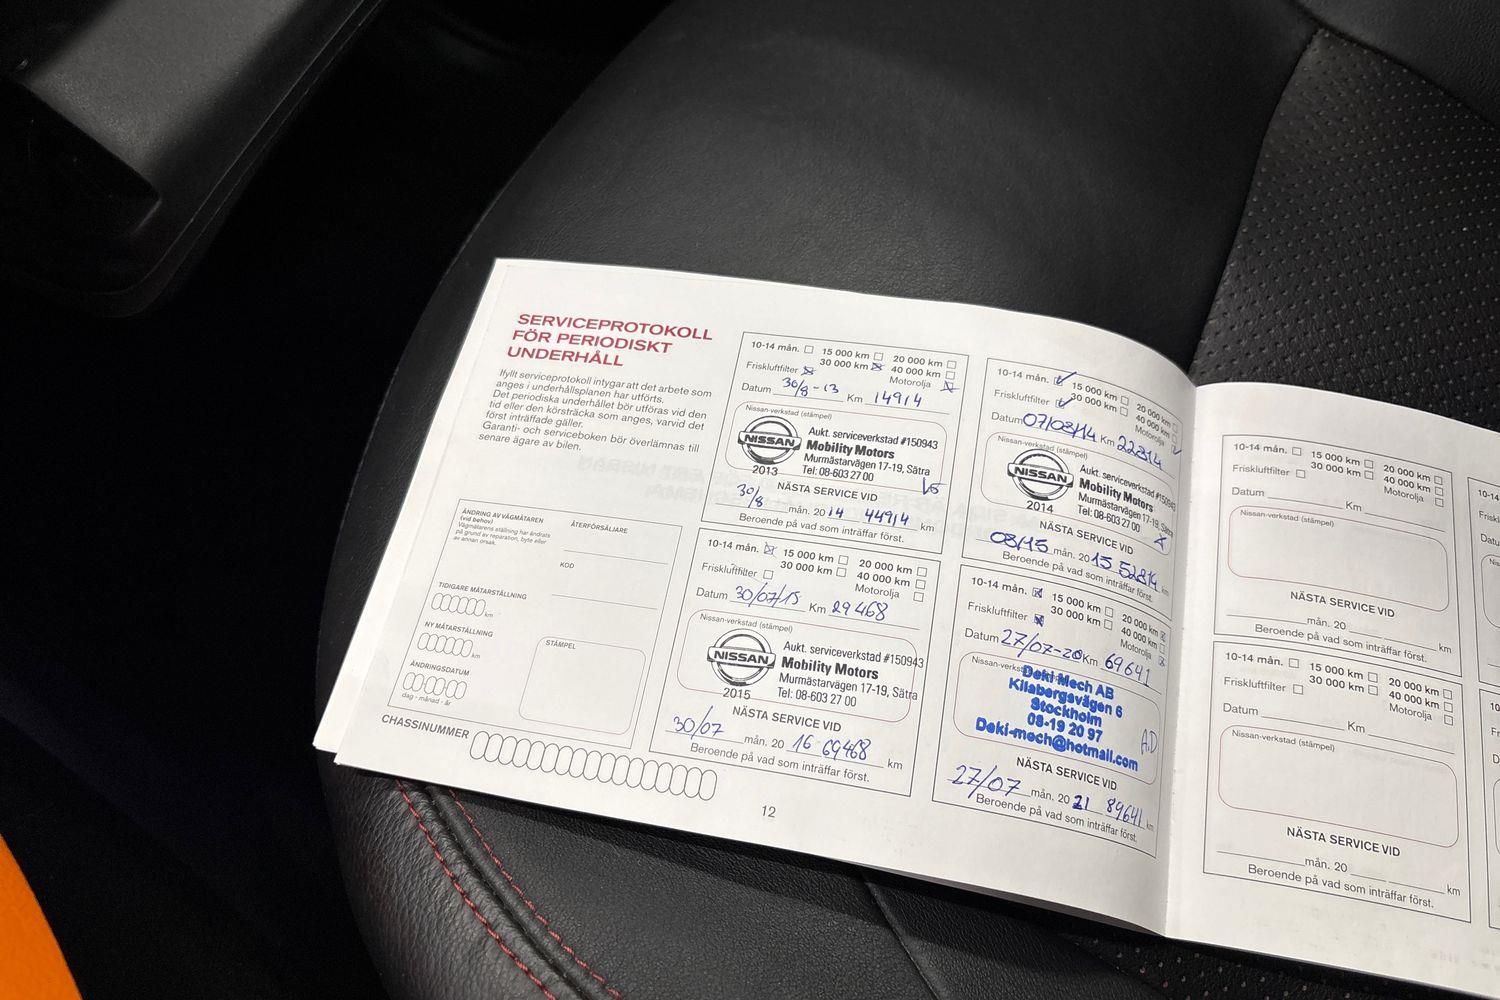 SERVICEPROTOKOLL
FÖR PERIODISKT
UNDERHÅLL
Ifyllt serviceprotokoll intygar att det arbete som
anges i underhållsplanen har utförts.
Det periodiska underhållet bör utföras vid den
tid eller den körsträcka som anges, varvid det
först inträffade gäller.
Garanti- och serviceboken bör överlämnas till
senare ägare av bilen.
ÄNDRING AV VÄGMÄTAREN
(vid behov)
Vägmätarens ställning har ändrats
på grund av reparation, byte eller
av annan orsak.
ÅTERFÖRSÄLJARE
KOD
TIDIGARE MÄTARSTÄLLNING
km
NY MÄTARSTÄLLNING
km
ÄNDRINGSDATUM
dag - månad - år
STÄMPEL
CHASSINUMMER
10-14 mån. 15 000 km 20 000 km
30 000 km 40 000 km
Friskluftfilter Motorolja
Datum 30/8-13 Km 14914
Nissan-verkstad (stämpel)
NISSAN
2013
Aukt. serviceverkstad #150943
Mobility Motors
Murmästarvägen 17-19, Sätra
Tel: 08-603 27 00
NÄSTA SERVICE VID
30/8 mån. 20 14 44914 km
Beroende på vad som inträffar först.
10-14 mån. 15 000 km 20 000 km
30 000 km 40 000 km
Friskluftfilter Motorolja
Datum 07/08/14 Km 22814
Nissan-verkstad (stämpel)
NISSAN
2014
Aukt. serviceverkstad #150943
Mobility Motors
Murmästarvägen 17-19, Sätra
Tel: 08-603 27 00
NÄSTA SERVICE VID
08/15 mån. 20 15 52814 km
Beroende på vad som inträffar först.
10-14 mån. 15 000 km 20 000 km
30 000 km 40 000 km
Friskluftfilter Motorolja
Datum 30/07/15 Km 29468
Nissan-verkstad (stämpel)
NISSAN
2015
Aukt. serviceverkstad #150943
Mobility Motors
Murmästarvägen 17-19, Sätra
Tel: 08-603 27 00
NÄSTA SERVICE VID
30/07 mån. 20 16 69468 km
Beroende på vad som inträffar först.
10-14 mån. 15 000 km 20 000 km
30 000 km 40 000 km
Friskluftfilter Motorolja
Datum 27/07-20 Km 69641
Deki Mech AB
Kilabergsvägen 6
Stockholm
08-19 20 97
Deki-mech@hotmail.com
A.D
NÄSTA SERVICE VID
27/07 mån. 20 21 89641 km
Beroende på vad som inträffar först.
12
10-14 mån. 15 000 km 20 000 km
30 000 km 40 000 km
Friskluftfilter Motorolja
Datum Km
Nissan-verkstad (stämpel)
NÄSTA SERVICE VID
mån. 20 km
Beroende på vad som inträffar först.
10-14 mån. 15 000 km 20 000 km
30 000 km 40 000 km
Friskluftfilter Motorolja
Datum Km
Nissan-verkstad (stämpel)
NÄSTA SERVICE VID
mån. 20 km
Beroende på vad som inträffar först.